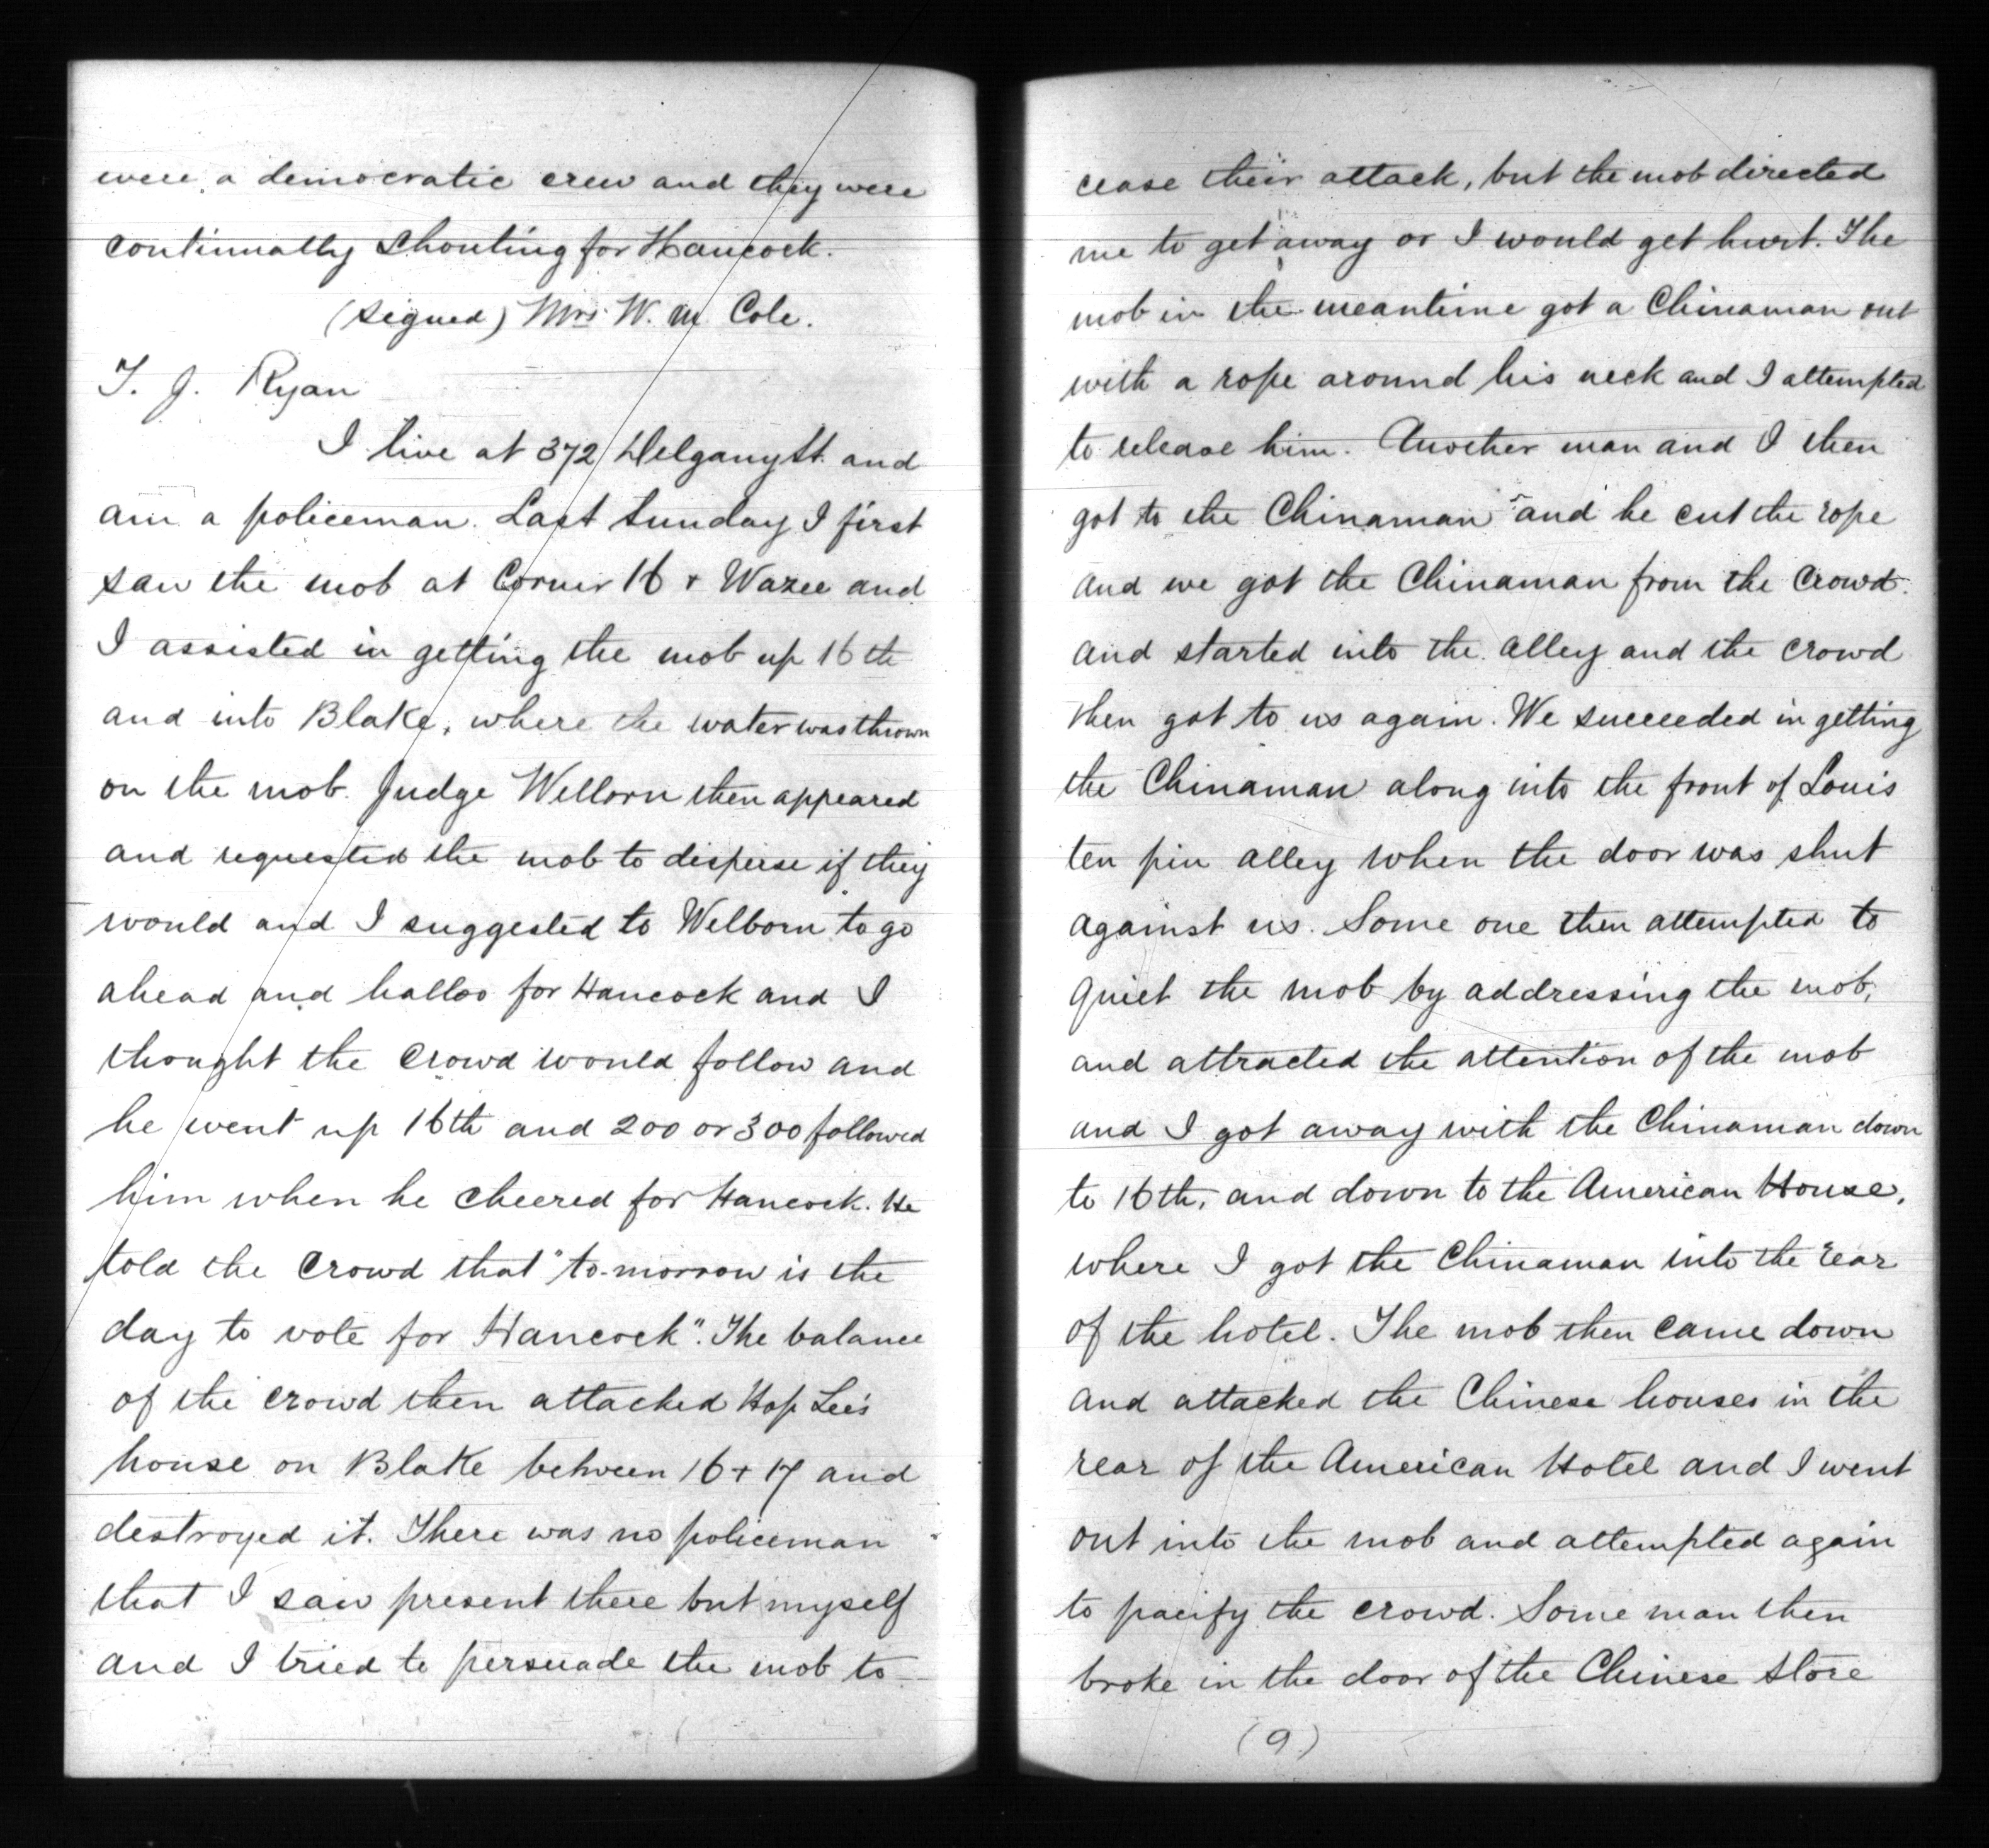 were a democratic crew and they were
continually shouting for Hancock.
(Signed) Mrs. W. M. Cole.
T. J. Ryan
I live at 372 Delgany St. and
am a policeman. Last Sunday I first
saw the mob at Corner 16 + Wazee and
I assisted in getting the mob up 16th
and into Blake, where the water was thrown
on the mob. Judge Welborn then appeared
and requested the mob to disperse if they
would and I suggested to Welborn to go
ahead and halloo for Hancock and I
thought the crowd would follow and
he went up 16th and 200 or 300 followed
him when he cheered for Hancock. He
told the crowd that "to-morrow is the
day to vote for Hancock". The balance
of the crowd then attacked Hop Lee's
house on Blake between 16 + 17 and
destroyed it. There was no policeman
that I saw present there but myself
and I tried to persuade the mob to
cease their attack, but the mob directed
me to get away or I would get hurt. The
mob in the meantime got a Chinaman out
with a rope around his neck and I attempted
to release him. Another man and I then
got to the Chinaman and he cut the rope
and we got the Chinaman from the crowd.
and started into the alley and the crowd
then got to us again. We succeeded in getting
the Chinaman along into the front of Louis
ten pin alley when the door was shut
against us. Some one then attempted to
quiet the mob by addressing the mob,
and attracted the attention of the mob
and I got away with the Chinaman down
to 16th, and down to the American House,
where I got the Chinaman into the rear
of the hotel. The mob then came down
and attacked the Chinese houses in the
rear of the American Hotel and I went
out into the mob and attempted again
to pacify the crowd. Some man then
broke in the door of the Chinese store
(9)